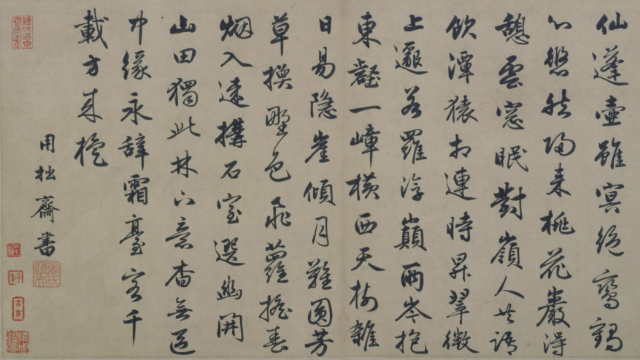 仙蓬壺雖冥絕鸞鶴
心悠然歸來桃花巖得
憩雲窓眠對嶺人共語
飲潭猿相連時昇翠微
上邈若羅浮巔兩岑抱
東壑一嶂橫西天樹雜
日易隱崖傾月難圓芳
草換野色飛蘿搖春
烟入遠搆石室選幽開
山田獨此林下意杳無區
中緣永辭霜臺客千
載方來旋
用拙齋書